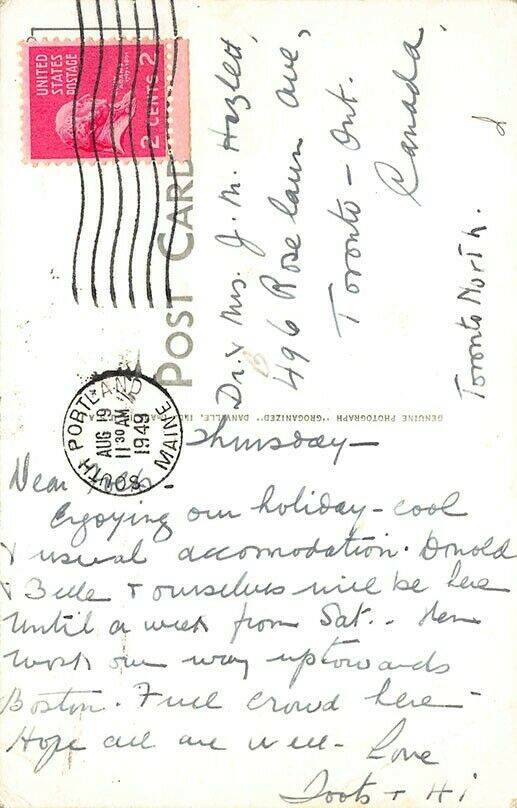 UNITED
STATES
POSTAGE
2 CENTS 2
POST CARD
Dr. & Mrs. J. M. Hazlett,
496 Roselawn Ave,
Toronto - Ont.
Canada.
Toronto North.
GENUINE PHOTOGRAPH "GROGANIZED" DANVILLE,
SOUTH PORTLAND MAINE
AUG 19
11 30 AM
1949
Thursday -
Dear Folks.
Enjoying our holiday - cool
& usual accomodation. Donald
& Belle & ourselves will be here
until a week from Sat.. Then
work our way up towards
Boston. Full crowd here -
Hope all are well - Love
Toots + Hi